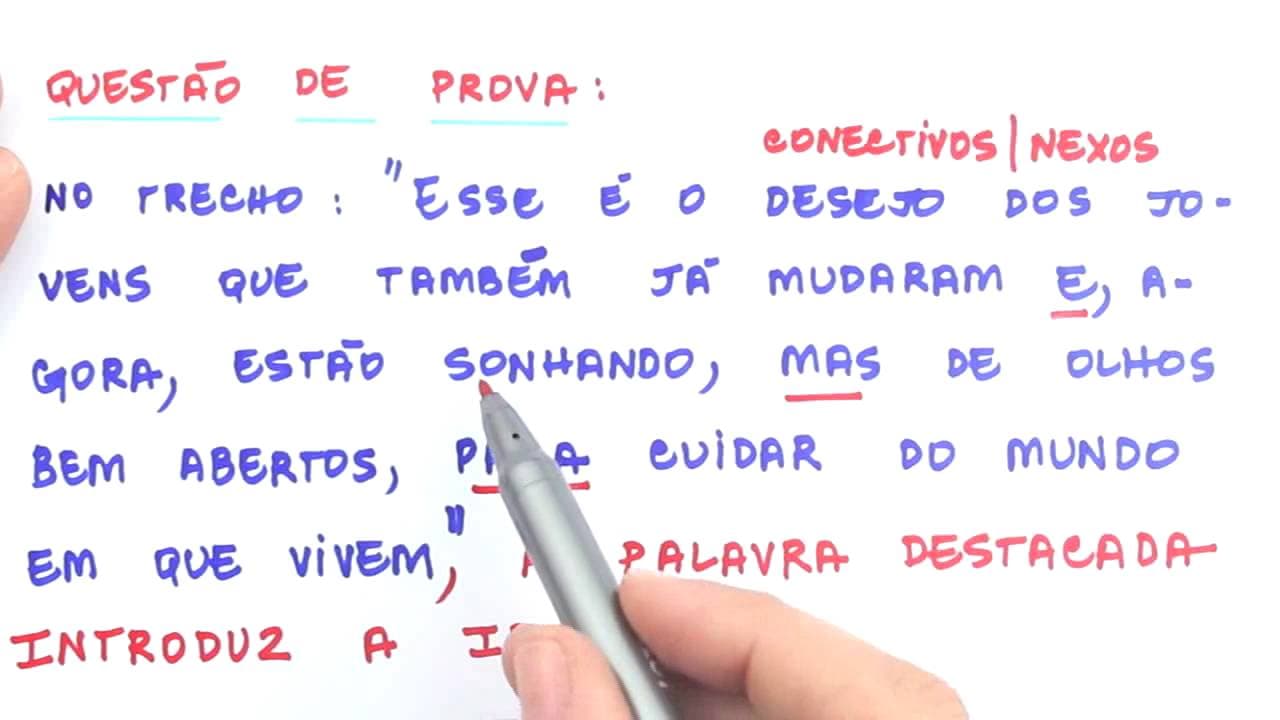 QUESTÃO DE PROVA:
CONECTIVOS | NEXOS
NO TRECHO: "ESSE É O DESEJO DOS JO-
VENS QUE TAMBÉM JÁ MUDARAM E, A-
GORA, ESTÃO SONHANDO, MAS DE OLHOS
BEM ABERTOS, PARA CUIDAR DO MUNDO
EM QUE VIVEM", A PALAVRA DESTACADA
INTRODUZ A